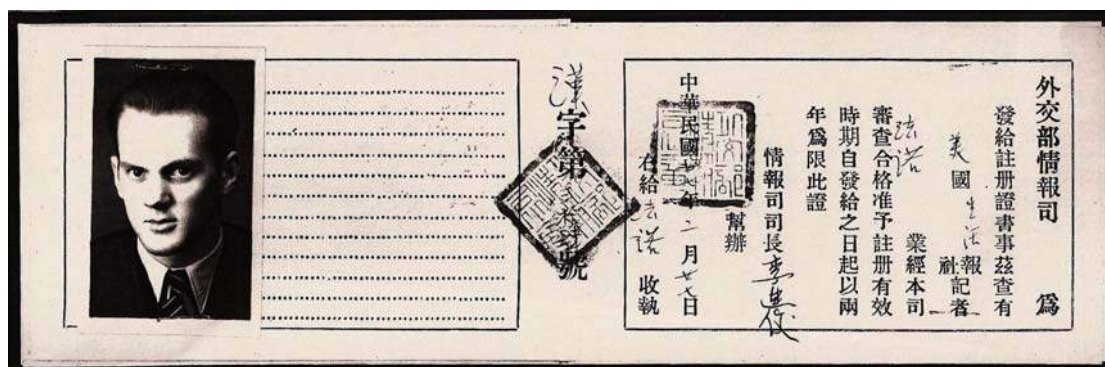 外交部情報司 爲
發給註册證書事茲查有
美國生活報社記者
法諾 業經本司
審查合格准予註册有效
時期自發給之日起以兩
年爲限此證
情報司司長李
幫辦
中華民國廿七年二月廿七日
右給法諾 收執
漢字第 號